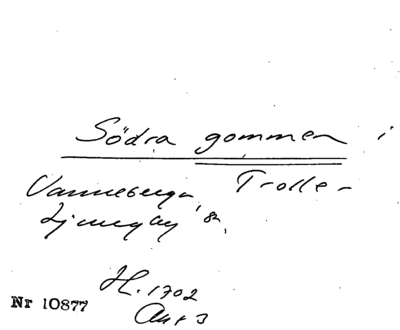 Södra gommen i
Vanneberga, Trolle-
Ljungby sn.
H. 1702
Nr 10877